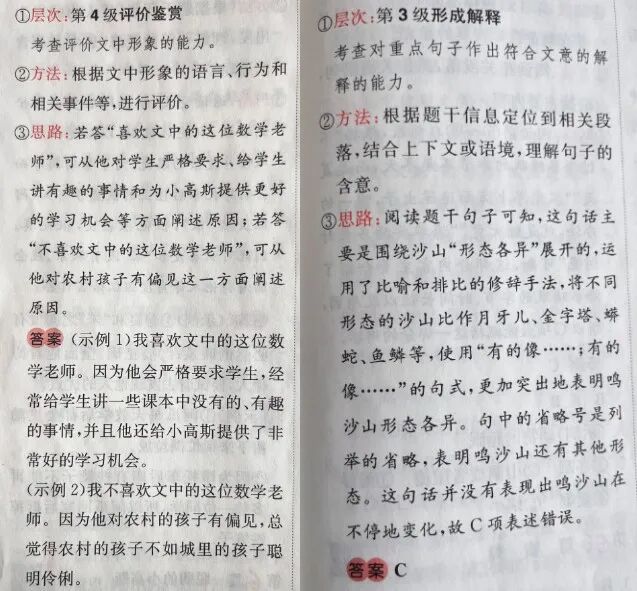 ①层次:第4级评价鉴赏
考查评价文中形象的能力。
②方法:根据文中形象的语言、行为和
相关事件等,进行评价。
③思路:若答“喜欢文中的这位数学老
师”,可从他对学生严格要求、给学生
讲有趣的事情和为小高斯提供更好
的学习机会等方面阐述原因;若答
“不喜欢文中的这位数学老师”,可从
他对农村孩子有偏见这一方面阐述
原因。
答案 (示例1)我喜欢文中的这位数
学老师。因为他会严格要求学生,经
常给学生讲一些课本中没有的、有趣
的事情,并且他还给小高斯提供了非
常好的学习机会。
(示例2)我不喜欢文中的这位数学老
师。因为他对农村的孩子有偏见,总
觉得农村的孩子不如城里的孩子聪
明伶俐。
①层次:第3级形成解释
考查对重点句子作出符合文意的解
释的能力。
②方法:根据题干信息定位到相关段
落,结合上下文或语境,理解句子的
含意。
③思路:阅读题干句子可知,这句话主
要是围绕沙山“形态各异”展开的,运
用了比喻和排比的修辞手法,将不同
形态的沙山比作月牙儿、金字塔、蟒
蛇、鱼鳞等,使用“有的像……;有的
像……”的句式,更加突出地表明鸣
沙山形态各异。句中的省略号是列
举的省略,表明鸣沙山还有其他形
态。这句话并没有表现出鸣沙山在
不停地变化,故C项表述错误。
答案 C